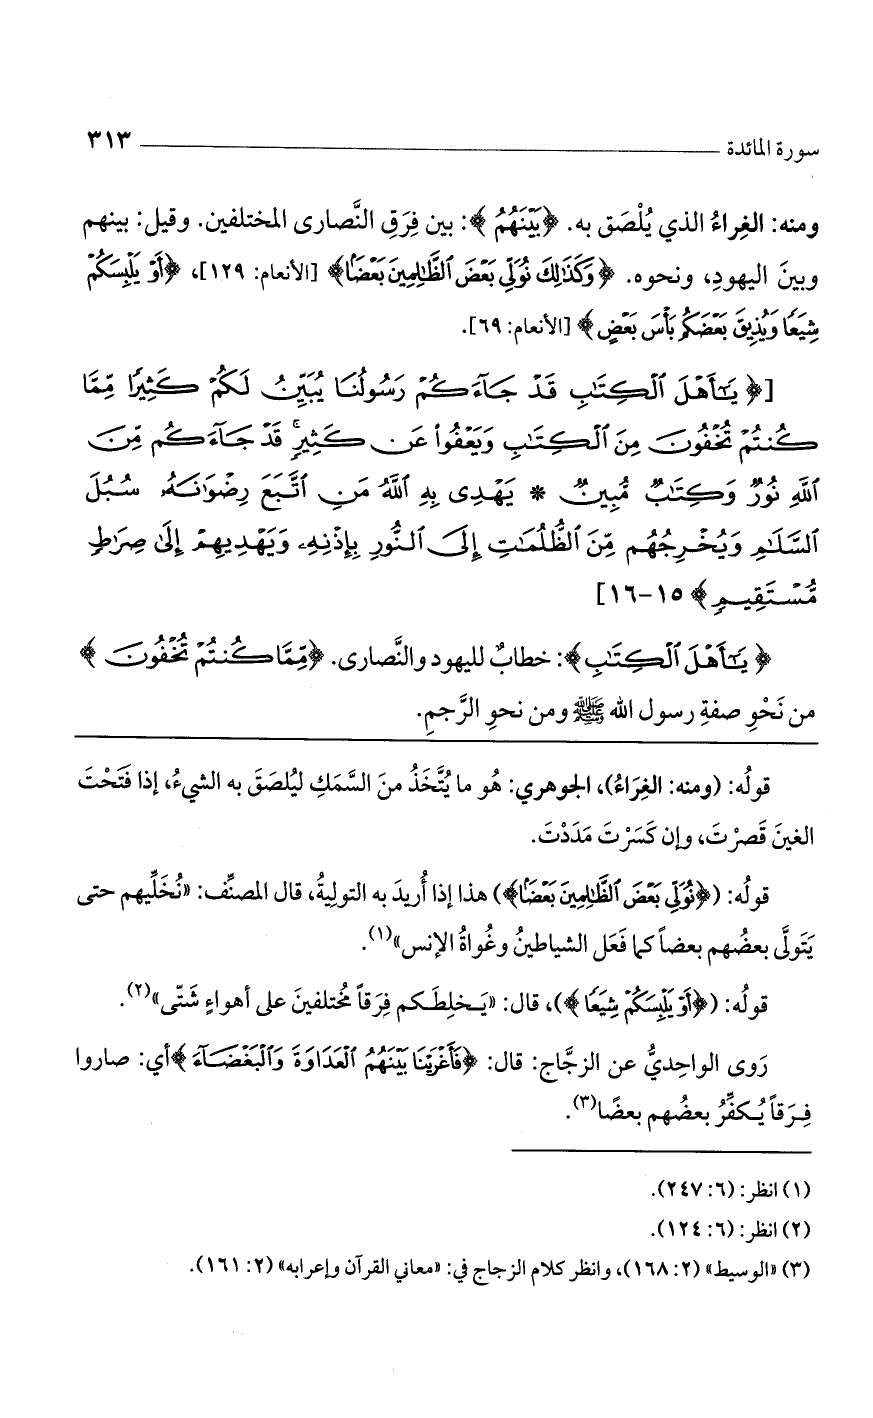 سورة المائدة ٣١٣
ومنه: الغِراءُ الذي يُلْصَق به. ﴿بَيْنَهُمُ﴾: بين فِرَقِ النَّصارى المختلفين. وقيل: بينهم
وبينَ اليهودِ، ونحوه. ﴿وَكَذَٰلِكَ نُوَلِّي بَعْضَ ٱلظَّٰلِمِينَ بَعْضًا﴾ [الأنعام: ١٢٩]، ﴿أَوْ يَلْبِسَكُمْ
شِيَعًا وَيُذِيقَ بَعْضَكُم بَأْسَ بَعْضٍ﴾ [الأنعام: ٦٩].
[﴿يَٰٓأَهْلَ ٱلْكِتَٰبِ قَدْ جَآءَكُمْ رَسُولُنَا يُبَيِّنُ لَكُمْ كَثِيرًا مِّمَّا
كُنتُمْ تُخْفُونَ مِنَ ٱلْكِتَٰبِ وَيَعْفُوا۟ عَن كَثِيرٍ ۚ قَدْ جَآءَكُم مِّنَ
ٱللَّهِ نُورٌ وَكِتَٰبٌ مُّبِينٌ * يَهْدِى بِهِ ٱللَّهُ مَنِ ٱتَّبَعَ رِضْوَٰنَهُۥ سُبُلَ
ٱلسَّلَٰمِ وَيُخْرِجُهُم مِّنَ ٱلظُّلُمَٰتِ إِلَى ٱلنُّورِ بِإِذْنِهِۦ وَيَهْدِيهِمْ إِلَىٰ صِرَٰطٍ
مُّسْتَقِيمٍ﴾ ١٥-١٦]
﴿يَٰٓأَهْلَ ٱلْكِتَٰبِ﴾: خطابٌ لليهود والنَّصارى. ﴿مِّمَّا كُنتُمْ تُخْفُونَ﴾
من نَحْوِ صفةِ رسول الله ﷺ ومن نحوِ الرَّجمِ.
قولُه: (ومنه: الغِرَاءُ)، الجوهري: هُو ما يُتَّخَذُ منَ السَّمَكِ ليُلصَقَ به الشيءُ، إذا فَتَحْتَ
الغينَ قَصرْتَ، وإن كَسَرْتَ مَدَدْتَ.
قولُه: (﴿نُوَلِّي بَعْضَ ٱلظَّٰلِمِينَ بَعْضًا﴾) هذا إذا أُريدَ به التوليةُ، قال المصنِّف: «نُخَلِّيهم حتى
يَتَولَّى بعضُهم بعضاً كما فَعَل الشياطينُ وغُواةُ الإنس»(١).
قولُه: (﴿أَوْ يَلْبِسَكُمْ شِيَعًا﴾)، قال: «يَخلِطَكم فِرَقاً مُختلفينَ على أهواءٍ شَتّى»(٢).
رَوى الواحِديُّ عن الزجَّاج: قال: ﴿فَأَغْرَيْنَا بَيْنَهُمُ ٱلْعَدَاوَةَ وَٱلْبَغْضَآءَ﴾ أي: صاروا
فِرَقاً يُكفِّرُ بعضُهم بعضًا(٣).
(١) انظر: (٦: ٢٤٧).
(٢) انظر: (٦: ١٢٤).
(٣) «الوسيط» (٢: ١٦٨)، وانظر كلام الزجاج في: «معاني القرآن وإعرابه» (٢: ١٦١).